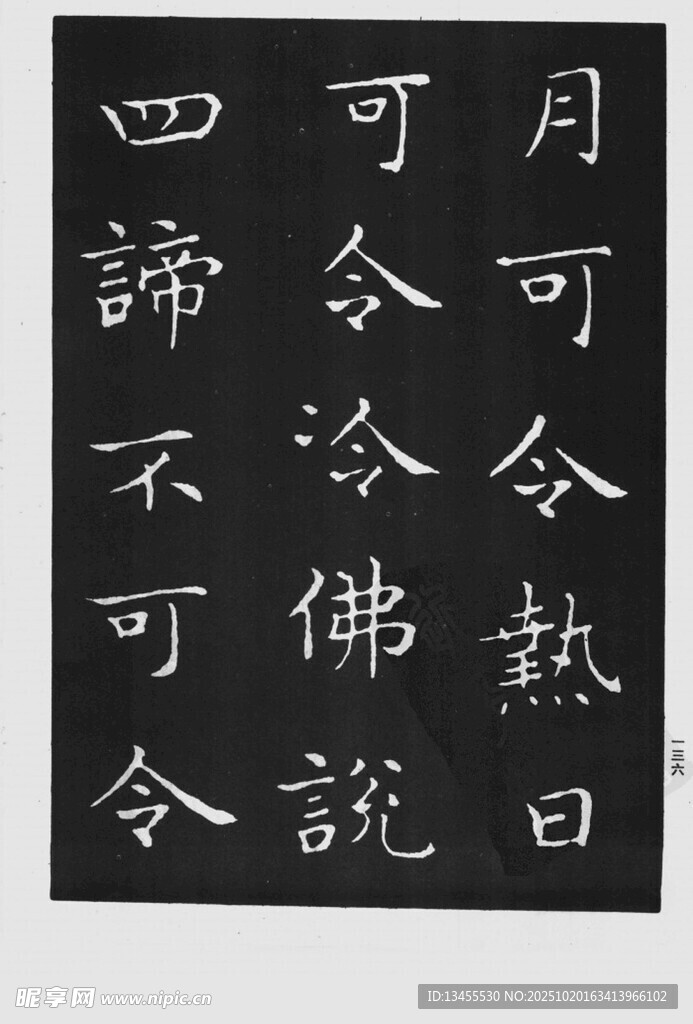 月可令熱日
可令冷佛說
四諦不可令
一三六
昵享网 www.nipic.cn
ID:13455530 NO:20251020163413966102